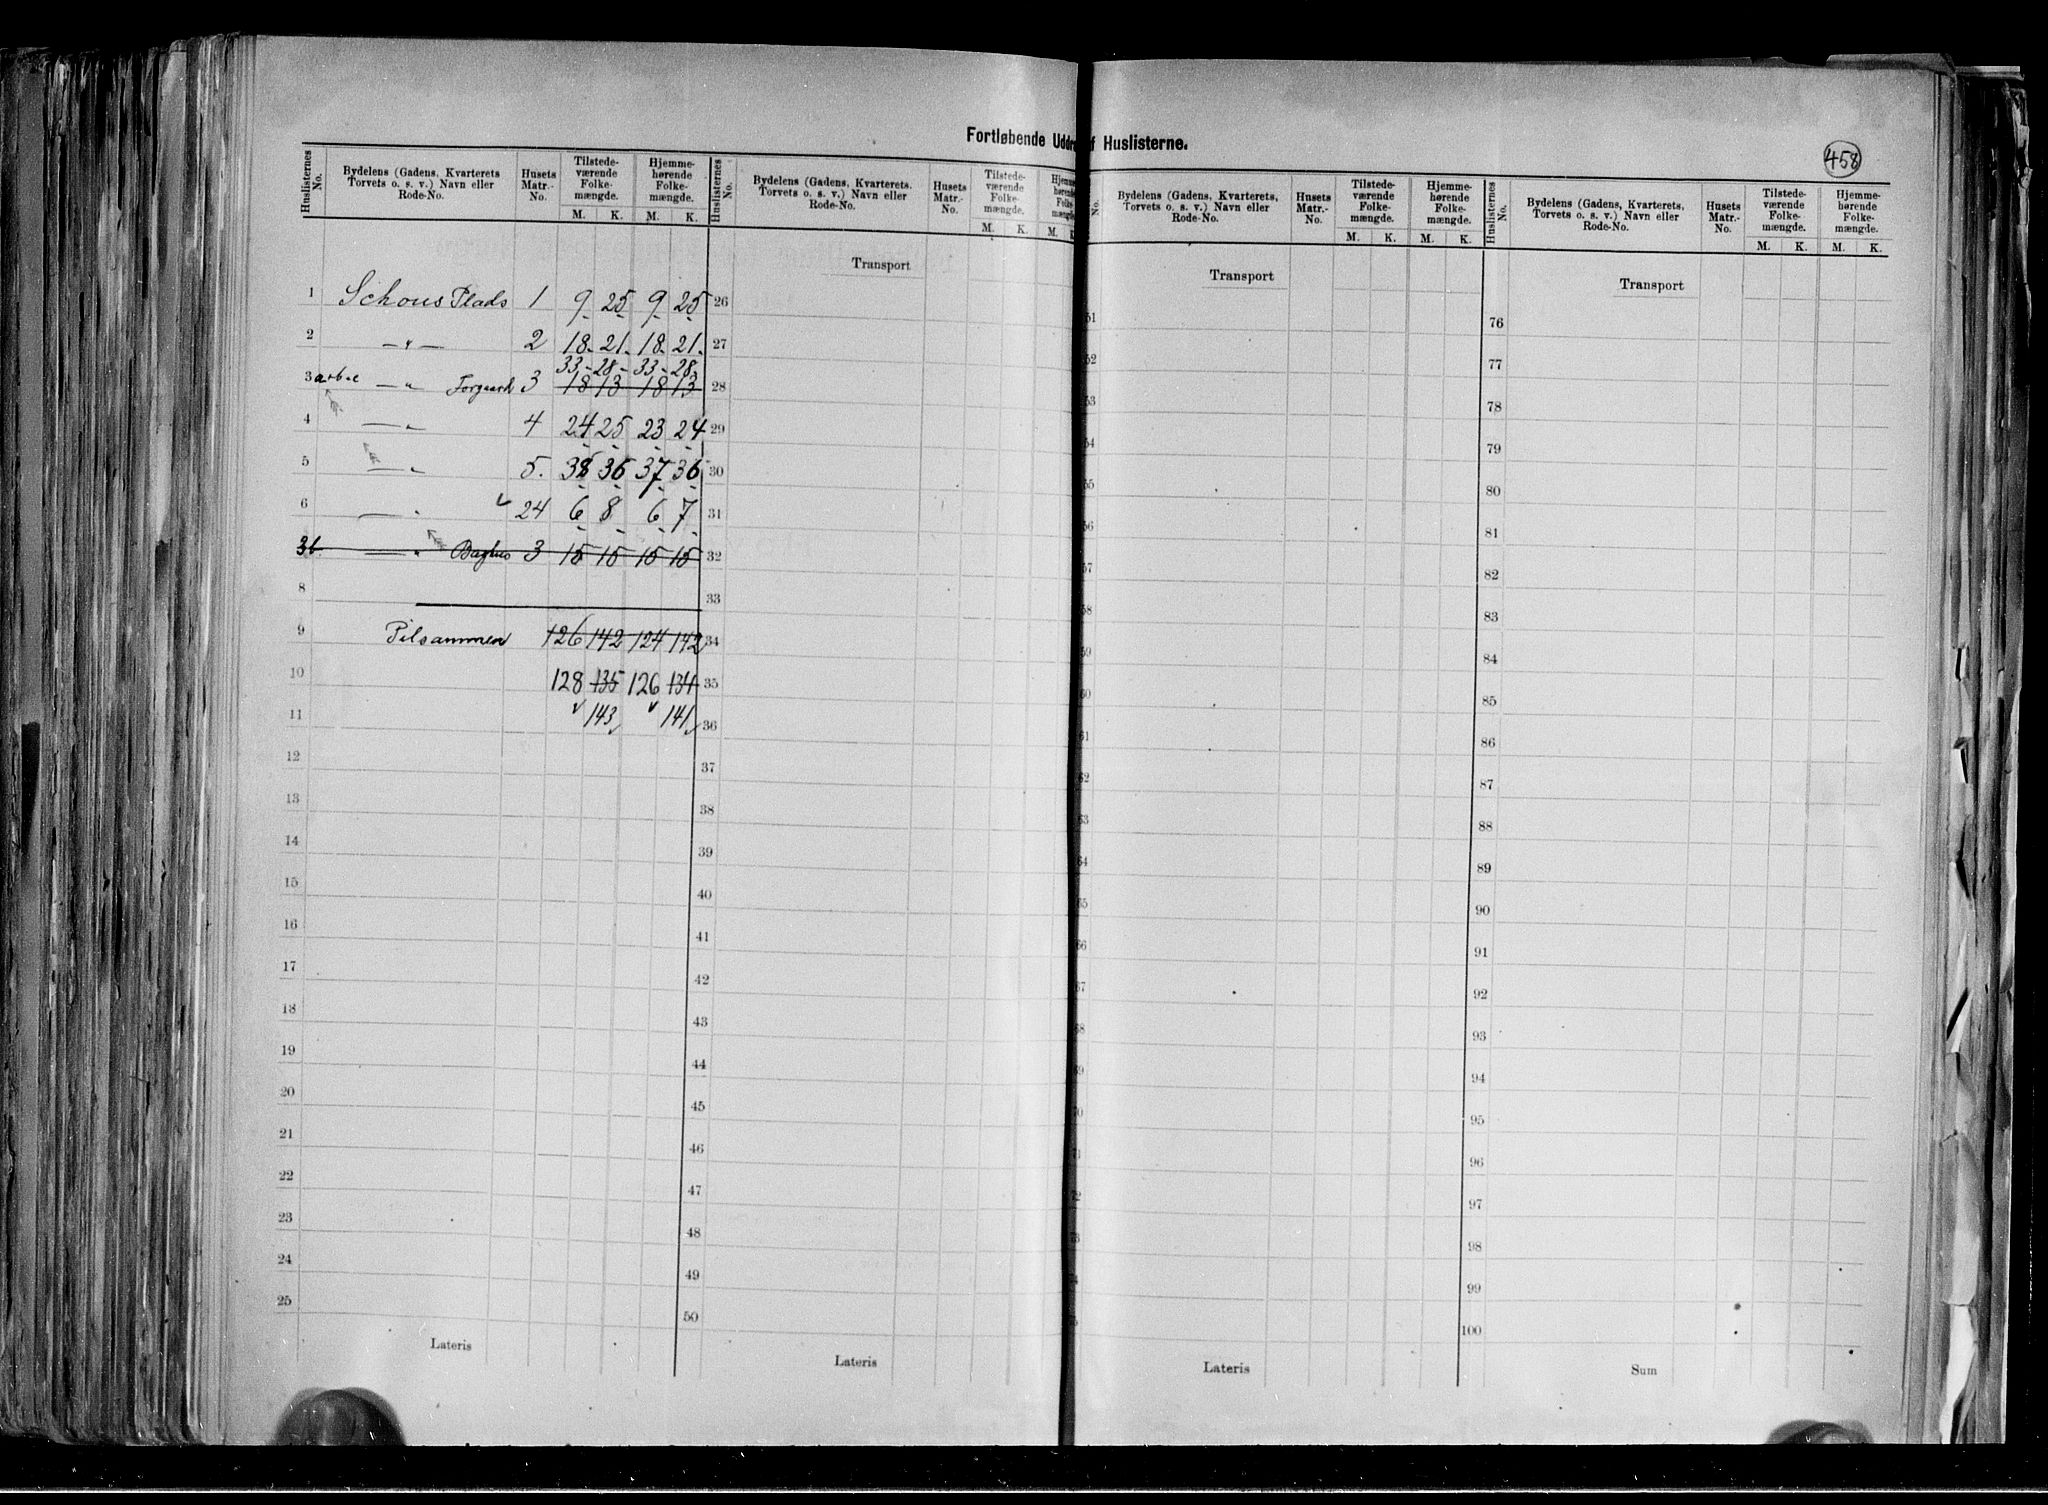 Fortløbende Uddra f Huslisterne.
458
Huslisternes No. | Bydelens (Gadens, Kvarterets Torvets o. s. v.) Navn eller Rode-No. | Husets Matr.-No. | Tilstede-værende Folke-mængde. M. K. | Hjemme-hørende Folke-mængde. M. K.
1 Schous Plads 1 9 25 9 25
2 —„— 2 18 21 18 21
33 28 33 28
3 a+b+c —„ Forgaard 3 18 13 18 13
4 —„ 4 24 25 23 24
5 —„ 5. 38 36 37 36
6 —„ 24 6 8 6 7
3b —„ Baghus 3 15 15 15 15
8
9 Tilsammen 126 142 124 142
10 128 135 126 134
11 143 141
12
13
14
15
16
17
18
19
20
21
22
23
24
25
Lateris
Huslisternes No. | Bydelens (Gadens, Kvarterets, Torvets o. s. v.) Navn eller Rode-No. | Husets Matr.-No. | Tilstede-værende Folke-mængde. M. K. | Hjemme-hørende Folke-mængde. M. K.
Transport
26
27
28
29
30
31
32
33
34
35
36
37
38
39
40
41
42
43
44
45
46
47
48
49
50
Lateris
No. | Bydelens (Gadens, Kvarterets, Torvets o. s. v.) Navn eller Rode-No. | Husets Matr.-No. | Tilstede-værende Folke-mængde. M. K. | Hjemme-hørende Folke-mængde. M. K.
Transport
51
52
53
54
55
56
57
58
59
60
61
62
63
64
65
66
67
68
69
70
71
72
73
74
75
Lateris
Huslisternes No. | Bydelens (Gadens, Kvarterets, Torvets o. s. v.) Navn eller Rode-No. | Husets Matr.-No. | Tilstede-værende Folke-mængde. M. K. | Hjemme-hørende Folke-mængde. M. K.
Transport
76
77
78
79
80
81
82
83
84
85
86
87
88
89
90
91
92
93
94
95
96
97
98
99
100
Sum